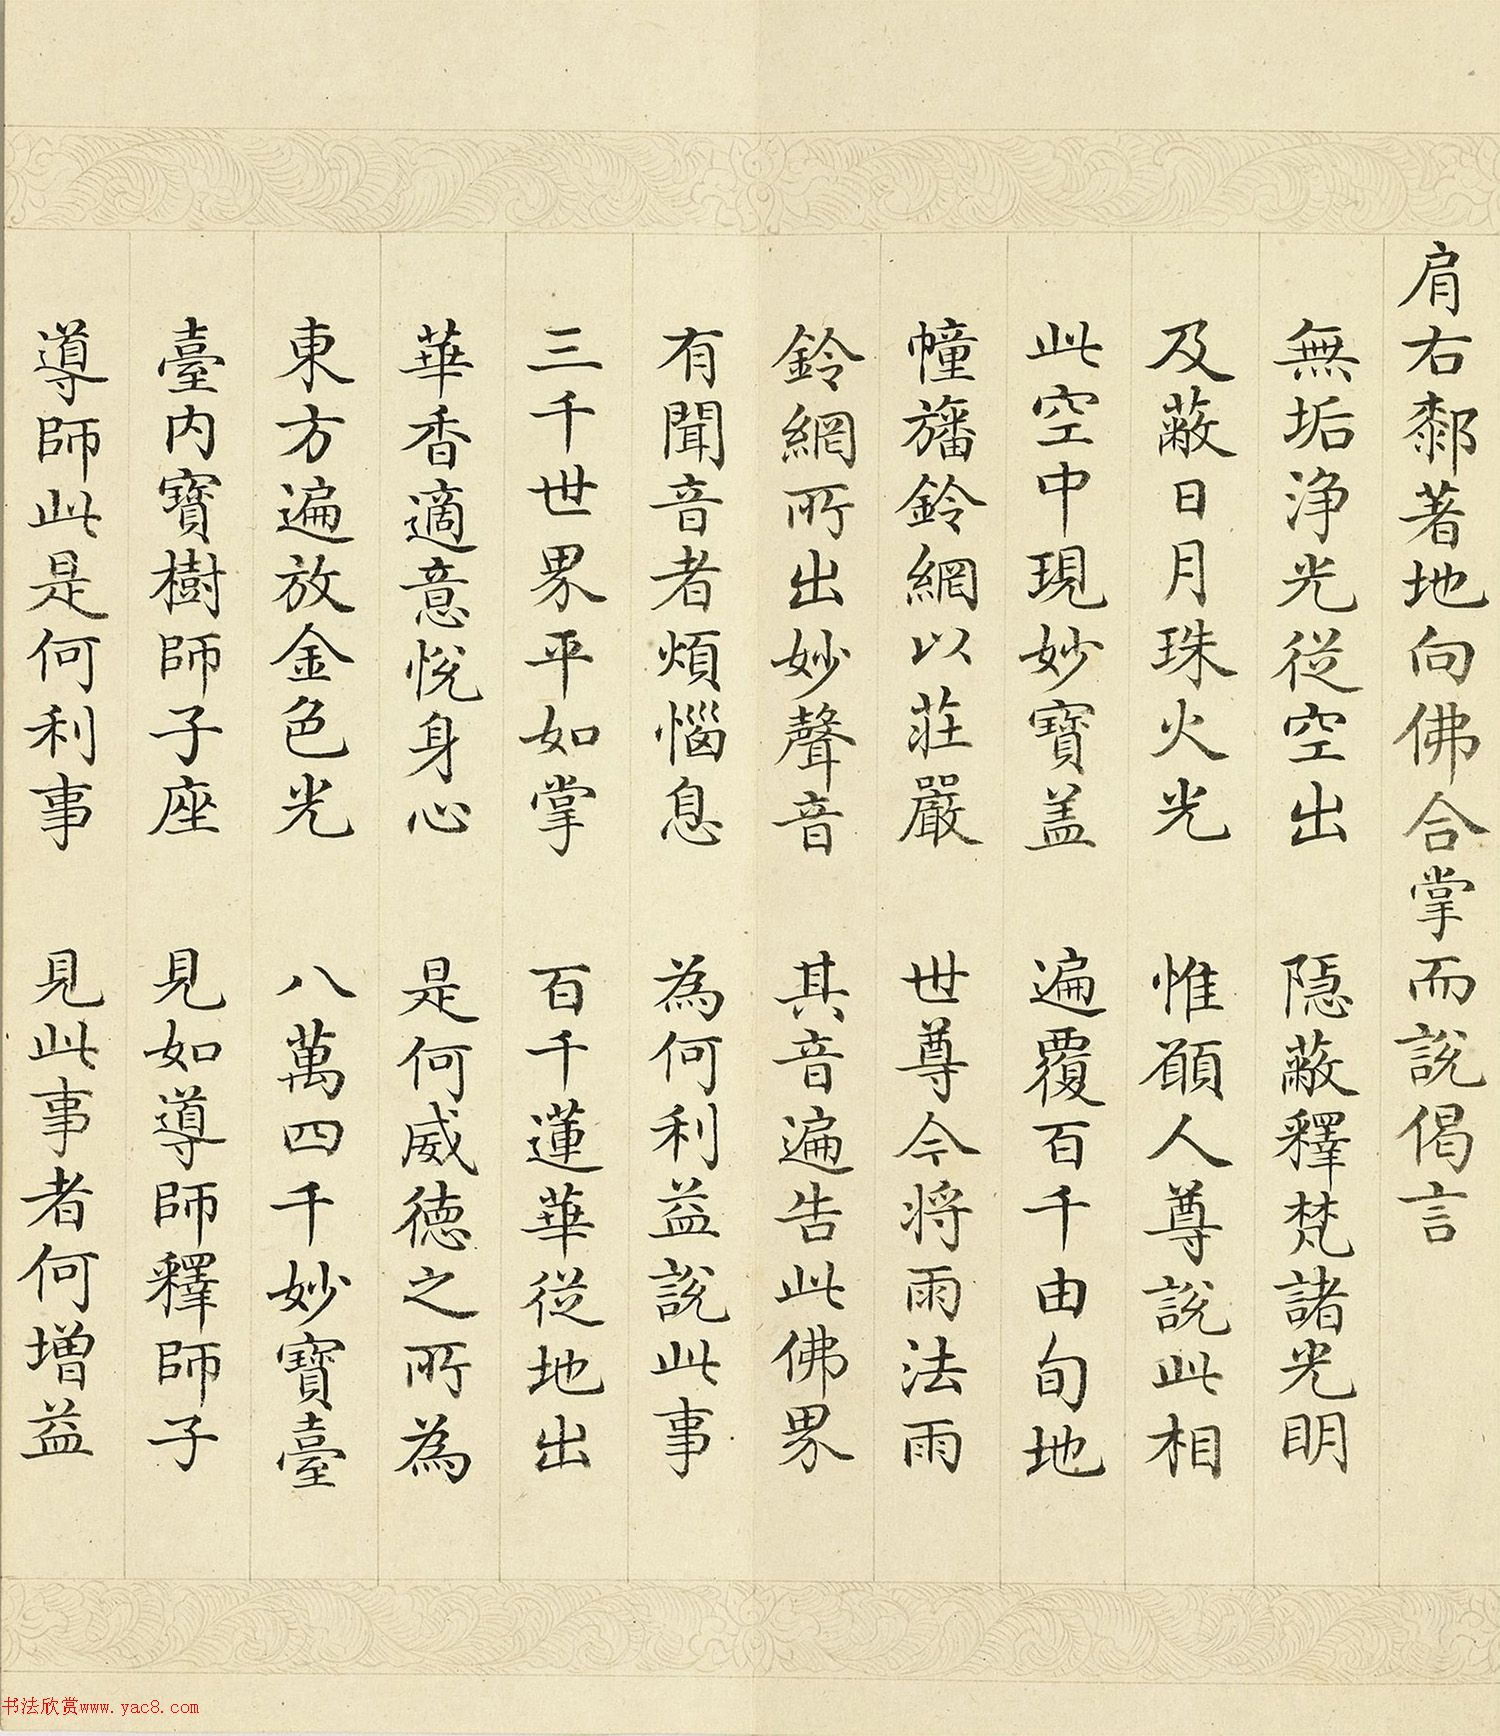 肩右𰀁著地向佛合掌而說偈言
無垢浄光從空出　隱蔽釋梵諸光明
及蔽日月珠火光　惟願人尊說此相
此空中現妙寶盖　遍覆百千由旬地
幢旛鈴網以莊嚴　世尊今将雨法雨
鈴網所出妙聲音　其音遍告此佛界
有聞音者煩惱息　為何利益說此事
三千世界平如掌　百千蓮華從地出
華香適意悅身心　是何威德之所為
東方遍放金色光　八萬四千妙寶臺
臺內寶樹師子座　見如導師釋師子
導師此是何利事　見此事者何增益
书法欣赏www.yac8.com